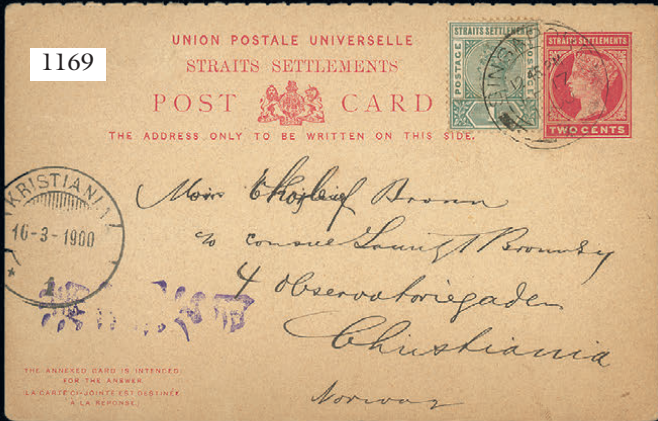 1169
UNION POSTALE UNIVERSELLE
STRAITS SETTLEMENTS
POST CARD
THE ADDRESS ONLY TO BE WRITTEN ON THIS SIDE.
STRAITS SETTLEMENTS
POSTAGE
STRAITS SETTLEMENTS
TWO CENTS
KRISTIANIA
16-3-1900
1
Broun
c/o Consul
4 Observatoriegaden
Christiania
Norway
THE ANNEXED CARD IS INTENDED
FOR THE ANSWER
LA CARTE CI-JOINTE EST DESTINÉE
À LA RÉPONSE